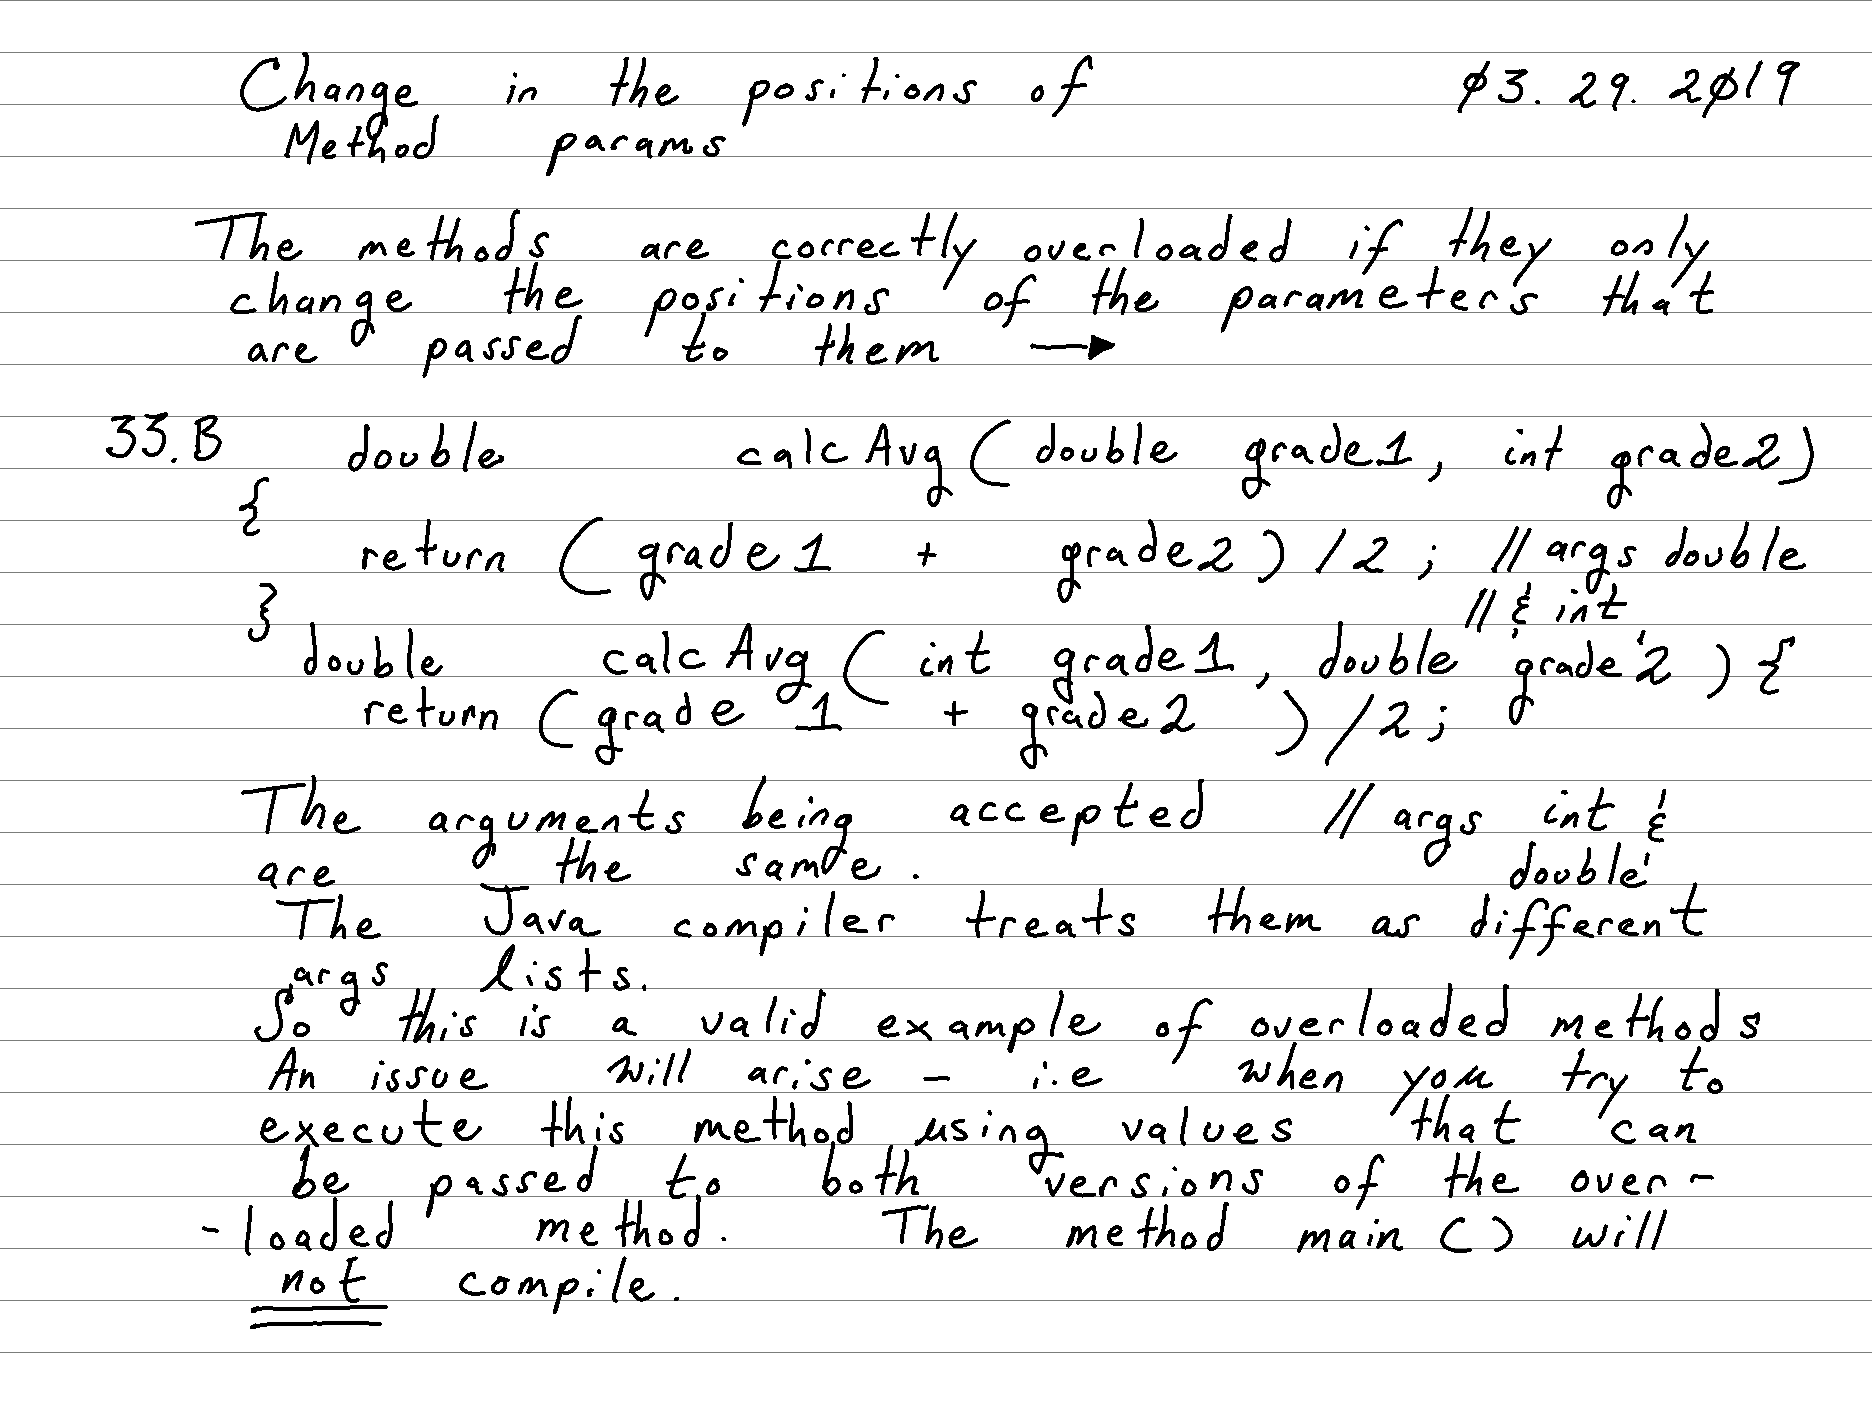 Change in the positions of φ3. 29. 2φ19
Method params
The methods are correctly overloaded if they only
change the positions of the parameters that
are passed to them →
33.B double calcAvg (double grade1, int grade2)
{
return (grade1 + grade2) /2 ; // args double
// & int
}
double calcAvg (int grade1, double grade2 ) {
return (grade 1 + grade2 ) /2 ;
The arguments being accepted // args int &
are the same. double
The Java compiler treats them as different
args lists.
So this is a valid example of overloaded methods
An issue will arise - i.e when you try to
execute this method using values that can
be passed to both versions of the over-
-loaded method. The method main () will
not compile.